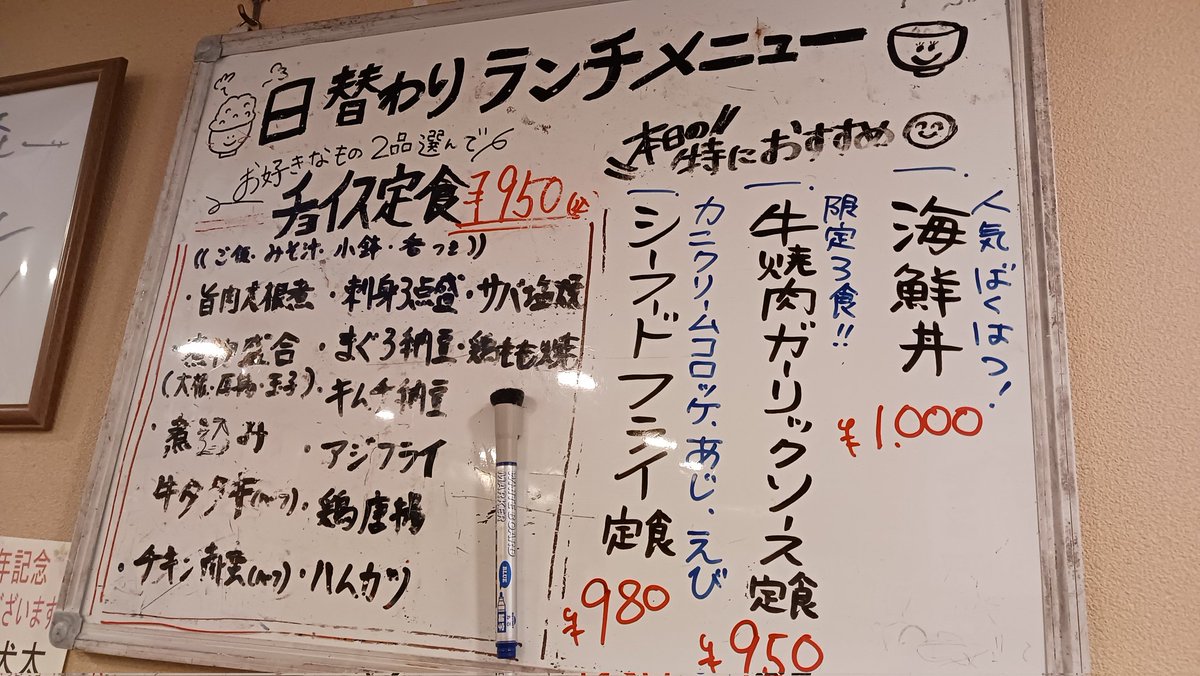 日替わりランチメニュー
お好きなもの 2品選んで
チョイス定食 ¥950
((ご飯・みそ汁・小鉢・香つき))
・刺身3点盛・サバ塩焼
・まぐろ納豆・鶏もも焼
・キムチ納豆
・煮込み
・アジフライ
・鶏唐揚
・ハムカツ
チキン
本日の!!特におすすめ
一.海鮮丼
人気ばくはつ!
¥1.000
一.牛焼肉ガーリックソース定食
限定3食!!
¥950
一.シーフードフライ定食
カニクリームコロッケ、あじ、えび
¥980
WHITE BOARD
MARKER
BLUE
年記念
ございます
犬太